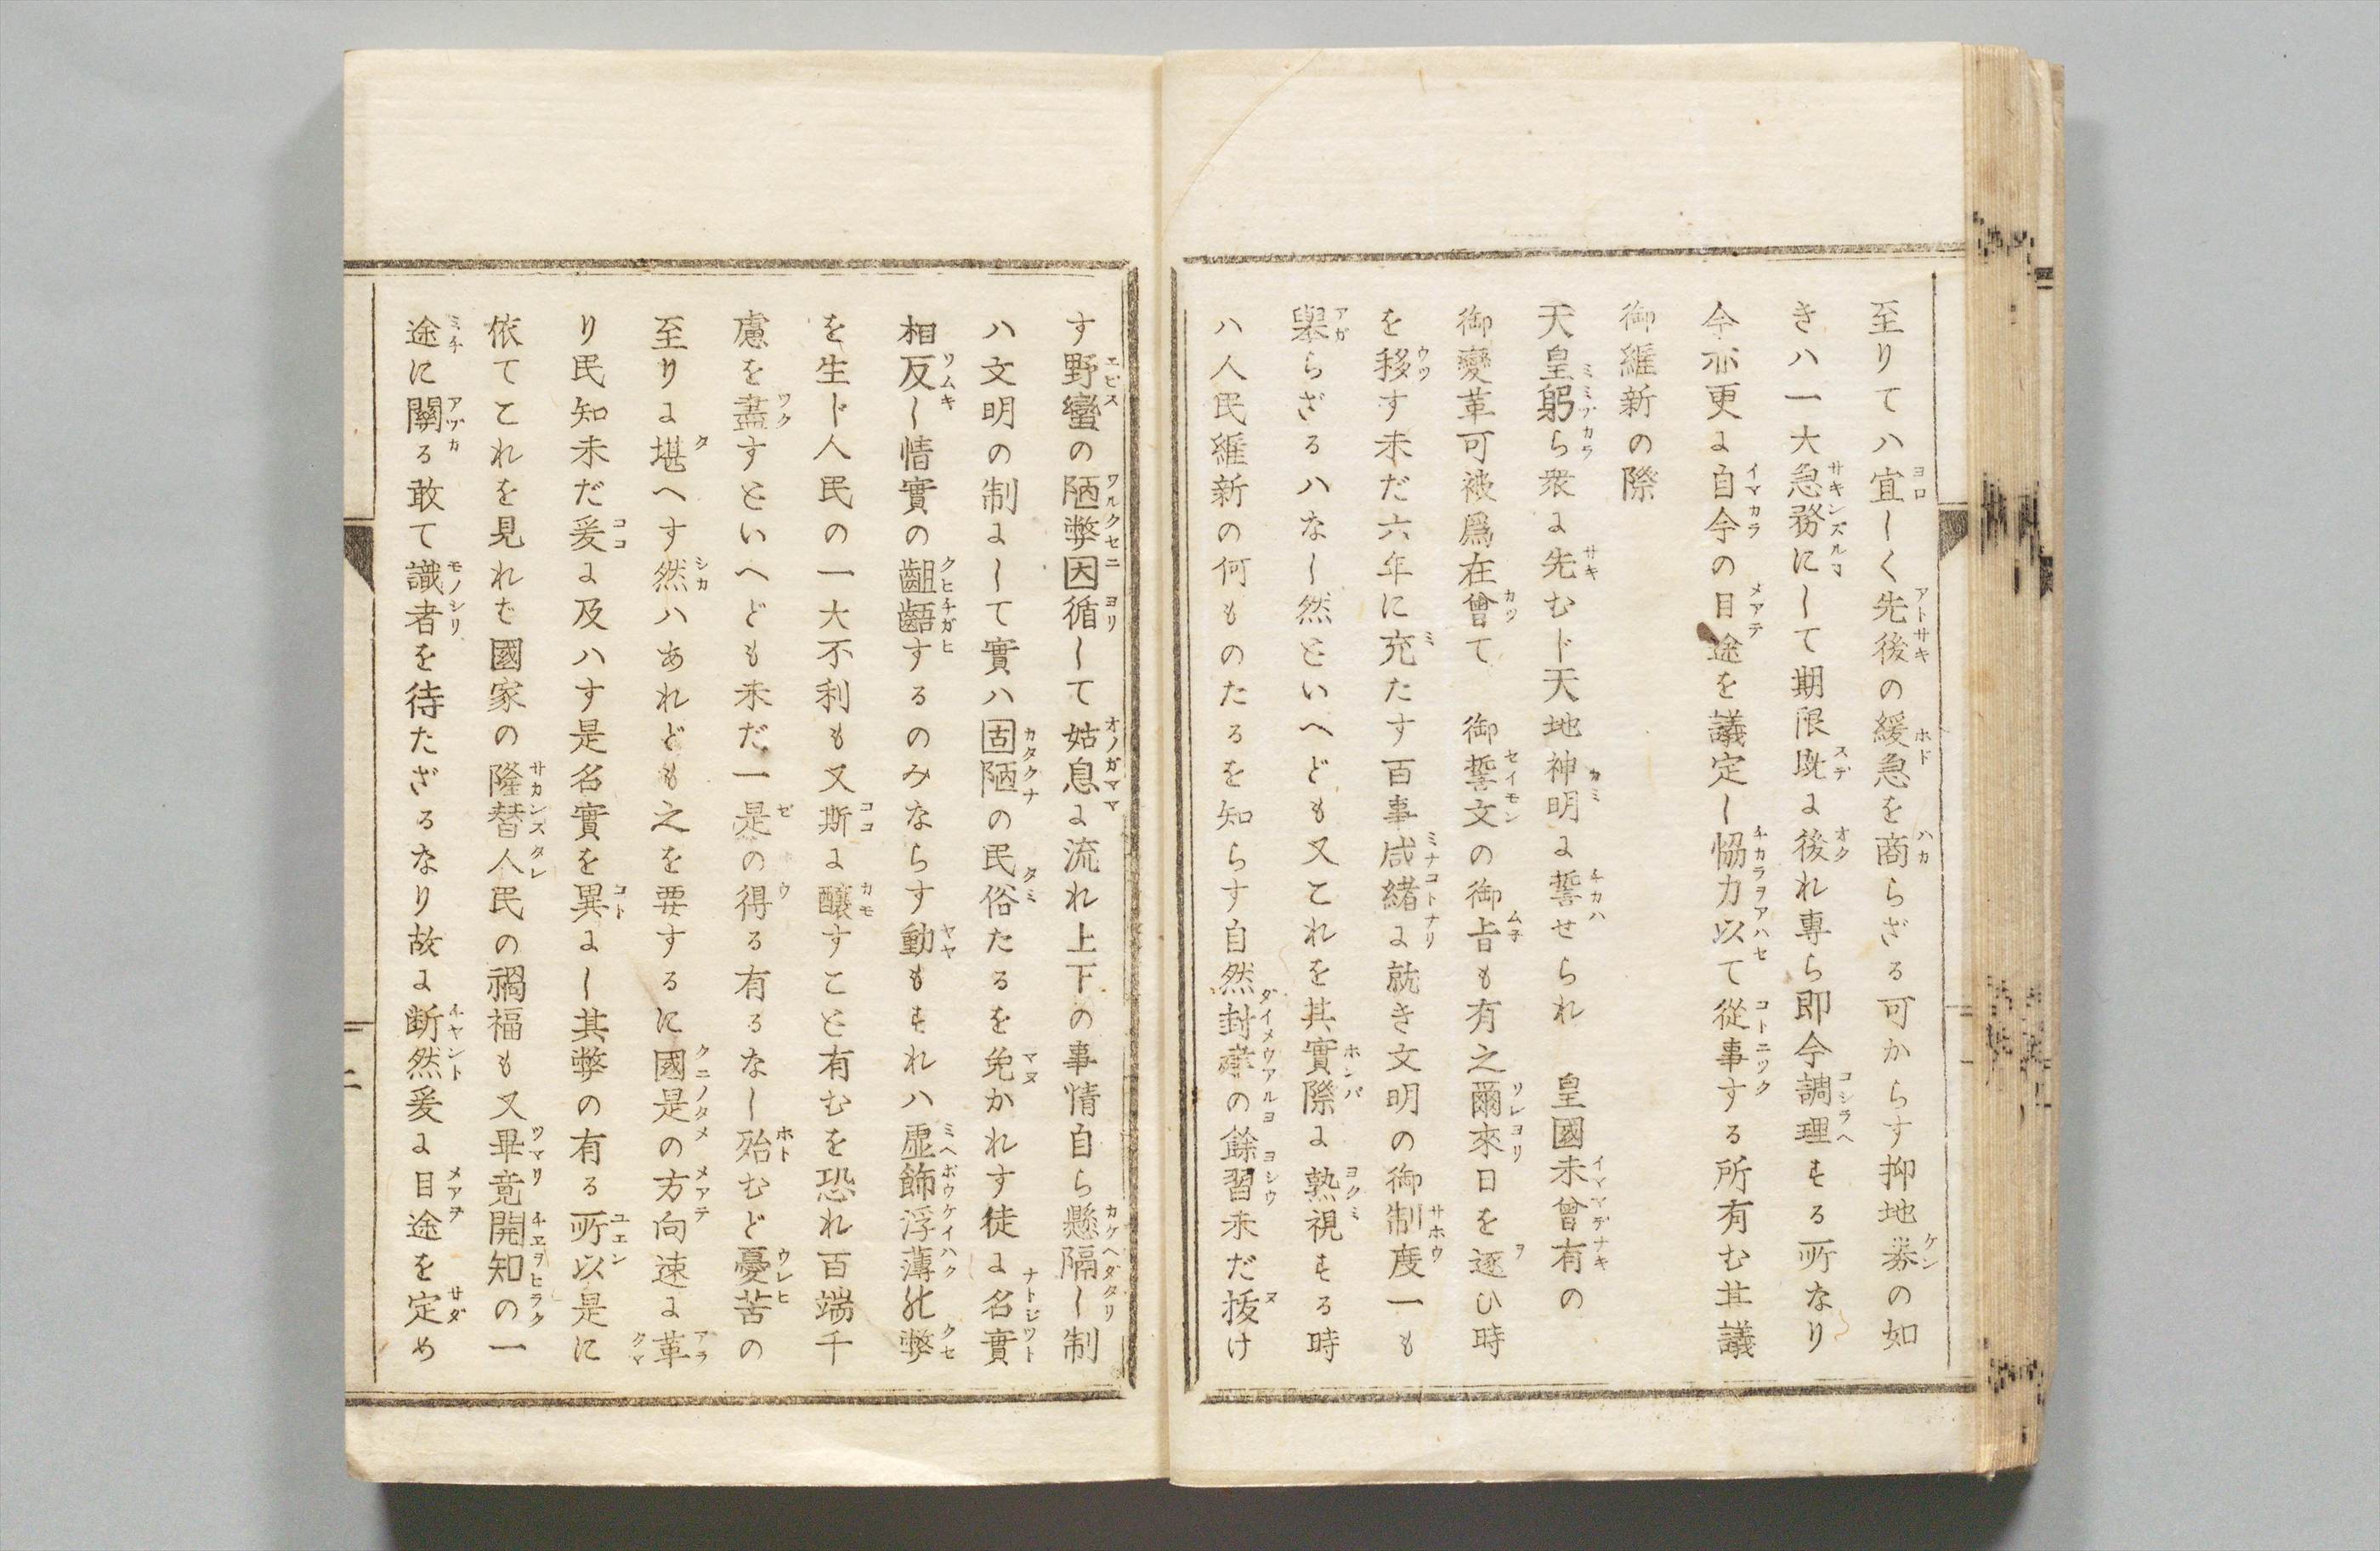 至りてハ宜しく先後の緩急を商らざる可からす抑地券の如
きハ一大急務にして期限既に後れ専ら即今調理する所なり
今亦更に自今の目途を議定し恊力以て從事する所有む其議
御維新の際
天皇躬ら衆に先むじ天地神明に誓せられ　皇國未曾有の
御變革可被爲在曾て　御誓文の御旨も有之爾來日を逐ひ時
を移す未だ六年に充たす百事咸緒に就き文明の御制度一も
舉らざるハなし然といへども又これを其實際に熟視する時
ハ人民維新の何ものたるを知らす自然封建の餘習未だ拔け
す野蠻の陋弊因循して姑息に流れ上下の事情自ら懸隔し制
ハ文明の制にして實ハ固陋の民俗たるを免かれす徒に名實
相反し情實の齟齬するのみならす動もすれハ虚飾浮薄の弊
を生じ人民の一大不利も又斯に釀すこと有むを恐れ百端千
慮を盡すといへども未だ一是の得る有るなし殆むど憂苦の
至りに堪へす然ハあれども之を要するに國是の方向速に革
り民知未だ爰に及ハす是名實を異にし其弊の有る所以是に
依てこれを見れば國家の隆替人民の禍福も又畢竟開知の一
途に關る敢て識者を待たざるなり故に断然爰に目途を定め
二